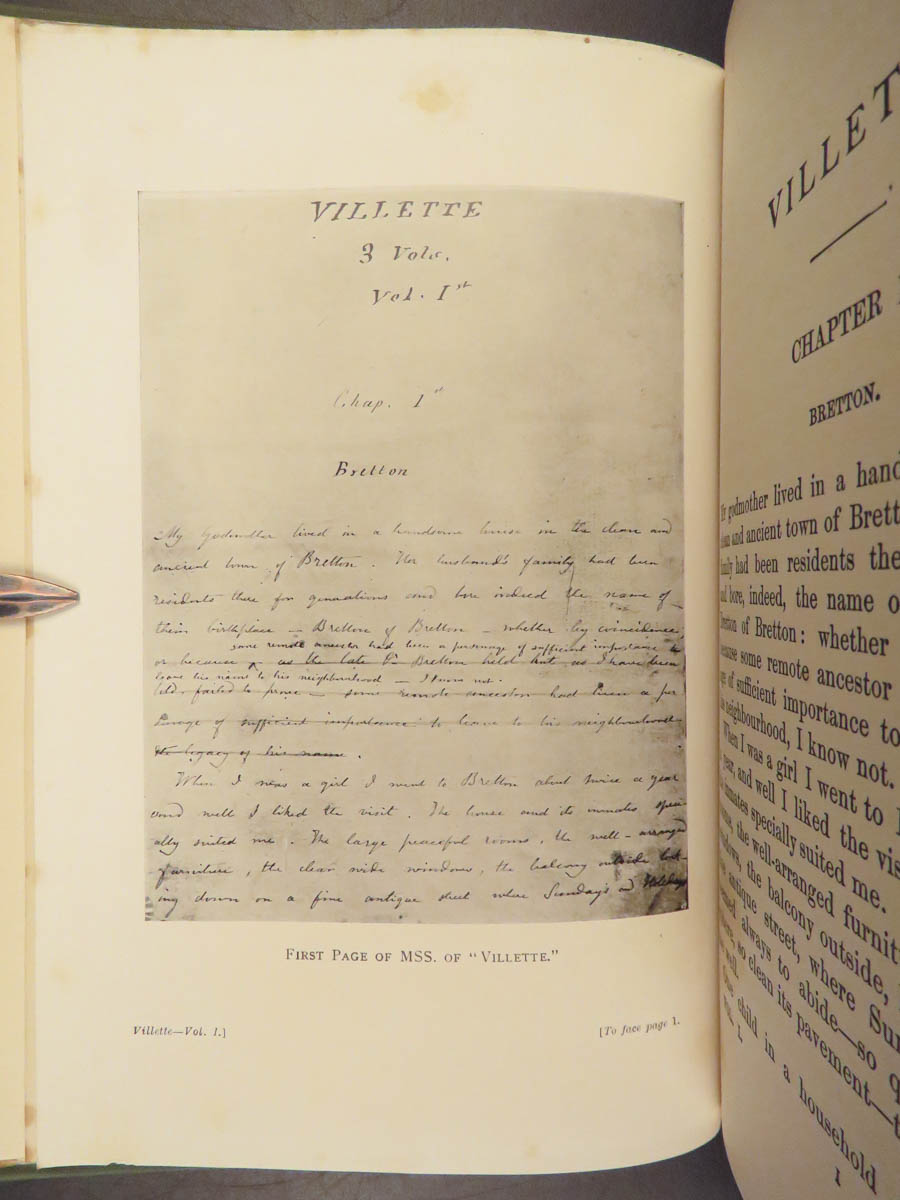 VILLETTE
3 Vols.
Vol. Ist
Chap. Ist
Bretton
My Godmother lived in a handsome house in the clean and
ancient town of Bretton. Her husband's family had been
residents there for generations and bore indeed the name of
their birthplace — Bretton of Bretton — whether by coincidence,
some remote ancestor had been a personage of sufficient importance to
or because — as the late Dr Bretton held but as I have been
leave his name to his neighbourhood — I know not.
failed to prove — some remote ancestor had been a per
sonage of sufficient importance to leave to his neighbourhood
the legacy of his name.
When I was a girl I went to Bretton about twice a year
and well I liked the visit. The house and its inmates speci
ally suited me. The large peaceful rooms, the well-arranged
furniture, the clear wide windows, the balcony outside look-
ing down on a fine antique street where Sundays and Holidays
FIRST PAGE OF MSS. OF "VILLETTE."
Villette—Vol. I.]
[To face page 1.
VILLET
CHAPTER
BRETTON.
godmother lived in a hand
and ancient town of Brett
had been residents the
bore, indeed, the name o
of Bretton: whether
some remote ancestor
of sufficient importance to
neighbourhood, I know not.
When I was a girl I went to
year, and well I liked the vis
inmates specially suited me.
the well-arranged furnit
the balcony outside,
antique street, where Sun
always to abide—so q
so clean its pavement—t
well.
One child in a household
VOL. I.
1